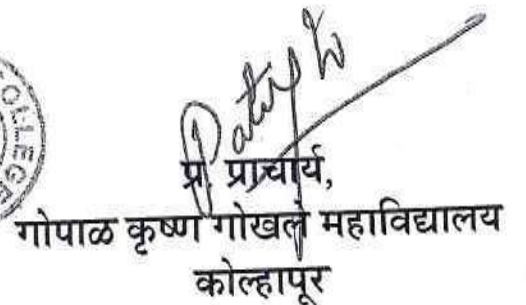 COLLEGE
प्र. प्राचार्य,
गोपाळ कृष्ण गोखले महाविद्यालय
कोल्हापूर